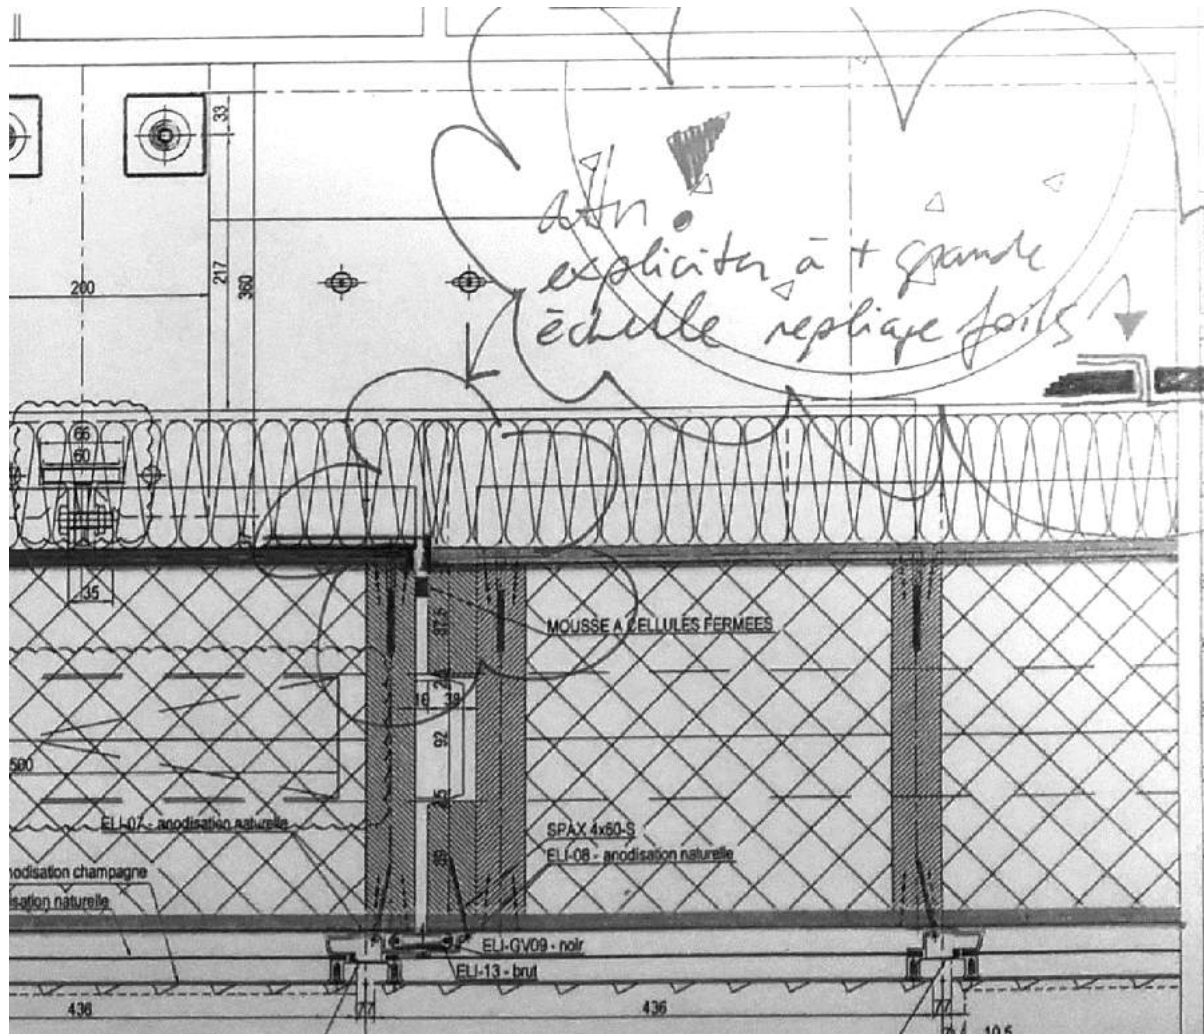 33
217
360
200
expliciter à + grande
échelle repliage foils
66
60
35
97.5
MOUSSE A CELLULES FERMEES
16
38
92
500
ELI-07 - anodisation naturelle
25
SPAX 4x60-S
ELI-08 - anodisation naturelle
nodisation champagne
isation naturelle
ELI-GV09 - noir
ELI-13 - brut
436
77
436
77
10.5